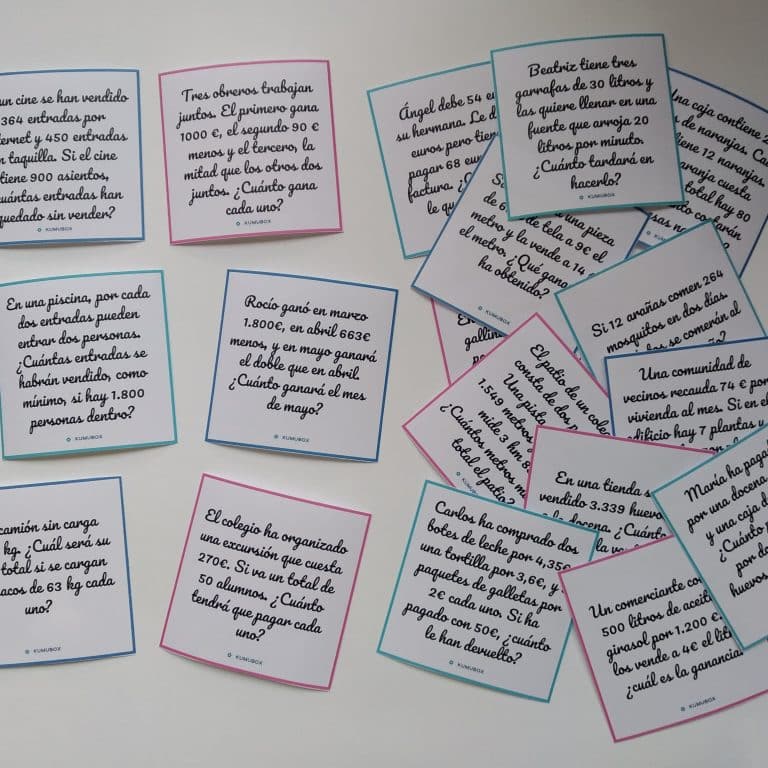 un cine se han vendido
364 entradas por
ternet y 450 entradas
n taquilla. Si el cine
tiene 900 asientos,
cuántas entradas han
quedado sin vender?
KUMUBOX
Tres obreros trabajan
juntos. El primero gana
1000 €, el segundo 90 €
menos y el tercero, la
mitad que los otros dos
juntos. ¿Cuánto gana
cada uno?
KUMUBOX
Ángel debe 54 e
su hermana. Le d
euros pero tien
pagar 68 eur
factura. ¿C
le qu
Beatriz tiene tres
garrafas de 30 litros y
las quiere llenar en una
fuente que arroja 20
litros por minuto.
¿Cuánto tardará en
hacerlo?
KUMUBOX
Una caja contiene 2
de naranjas. Ca
iene 12 naranjas.
aranja cuesta
total hay 80
nto costarán
sas n
Si
una pieza
de 6 de tela a 9€ el
metro y la vende a 14
el metro. ¿Qué gana
ha obtenido?
KUMUBOX
En una piscina, por cada
dos entradas pueden
entrar dos personas.
¿Cuántas entradas se
habrán vendido, como
mínimo, si hay 1.800
personas dentro?
KUMUBOX
Rocío ganó en marzo
1.800€, en abril 663€
menos, y en mayo ganará
el doble que en abril.
¿Cuánto ganará el mes
de mayo?
KUMUBOX
En
gallin
po
Si 12 arañas comen 264
mosquitos en dos días.
se comerán al
El patio de un coleg
consta de dos p
Una pista
1.549 metros
mide 3 hm 8
¿Cuántos metros m
total el patio?
KUMUBOX
Una comunidad de
vecinos recauda 74 € por
vivienda al mes. Si en el
edificio hay 7 plantas y
camión sin carga
kg. ¿Cuál será su
total si se cargan
acos de 63 kg cada
uno?
KUMUBOX
El colegio ha organizado
una excursión que cuesta
270€. Si va un total de
50 alumnos. ¿Cuánto
tendrá que pagar cada
uno?
KUMUBOX
Carlos ha comprado dos
botes de leche por 4,35€
una tortilla por 3,6€, y
paquetes de galletas por
2€ cada uno. Si ha
pagado con 50€, ¿cuánto
le han devuelto?
KUMUBOX
En una tienda s
vendido 3.339 huevo
la docena. ¿Cuánt
la v
María ha paga
por una docena
y una caja d
¿Cuánto
por do
huevos
Un comerciante co
500 litros de aceit
girasol por 1.200 €.
los vende a 4€ el lit
¿cuál es la ganancia
KUMUBOX